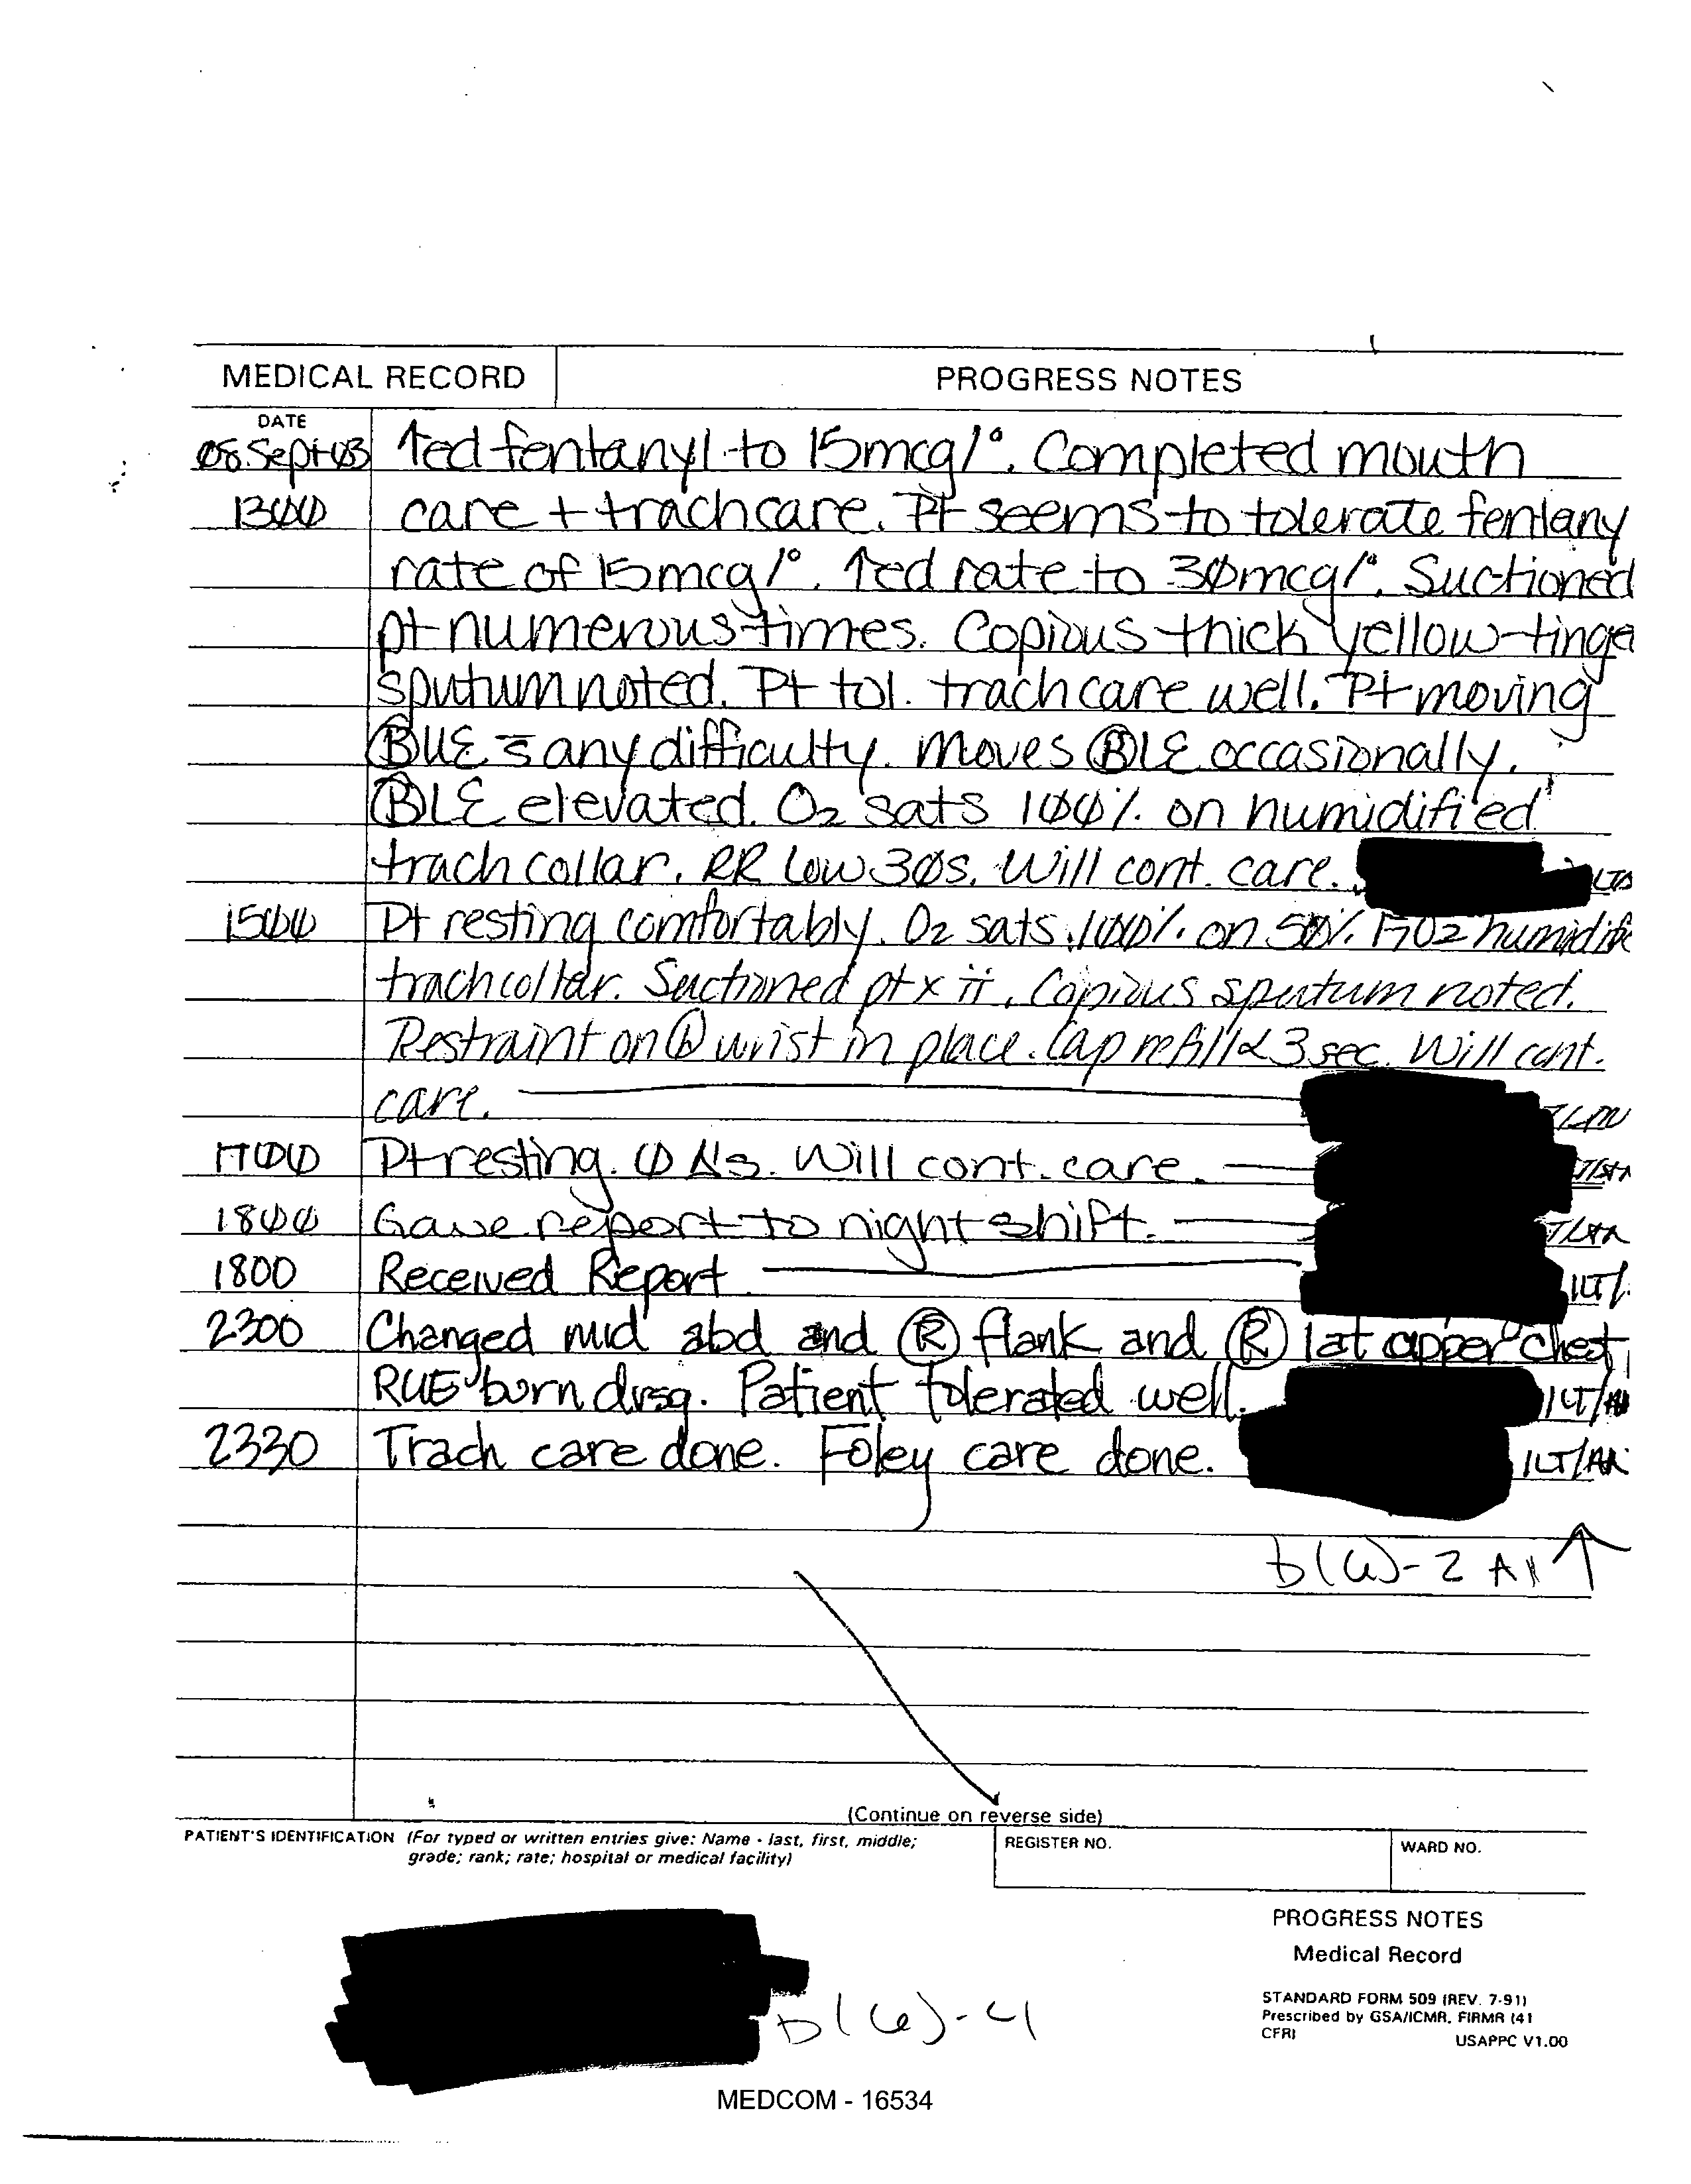 MEDICAL RECORD
PROGRESS NOTES
DATE
08 Sept 03 ↑ed fentanyl to 15mcg/°. Completed mouth
1300 care + trach care. Pt seems to tolerate fentany
rate of 15mcg/°. ↑ed rate to 30mcg/°. Suctioned
pt numerous times. Copious thick yellow-tinge
sputum noted. Pt tol. trach care well. Pt moving
Ⓑ UE s̄ any difficulty. Moves Ⓑ LE occasionally.
Ⓑ LE elevated. O2 sats 100% on humidified
trach collar. RR low 30s. Will cont. care.
1500 Pt resting comfortably. O2 sats 100% on 50% FiO2 humidifie
trach collar. Suctioned pt x ii. Copious sputum noted.
Restraint on wrist in place. Cap refill < 3 sec. Will cont.
care.
1700 Pt resting. Ø Δs. Will cont. care.
1800 Gave report to night shift.
1800 Received Report 1LT/
2300 Changed mid abd and Ⓡ flank and Ⓡ lat upper chest,
RUE burn drsg. Patient tolerated well. 1LT/AN
2330 Trach care done. Foley care done. 1LT/AN
b(6)-2 All ↑
(Continue on reverse side)
PATIENT'S IDENTIFICATION (For typed or written entries give: Name - last, first, middle;
grade; rank; rate; hospital or medical facility)
REGISTER NO.
WARD NO.
PROGRESS NOTES
Medical Record
STANDARD FORM 509 (REV. 7-91)
Prescribed by GSA/ICMR, FIRMR (41
CFR)
USAPPC V1.00
b(6)-4
MEDCOM - 16534